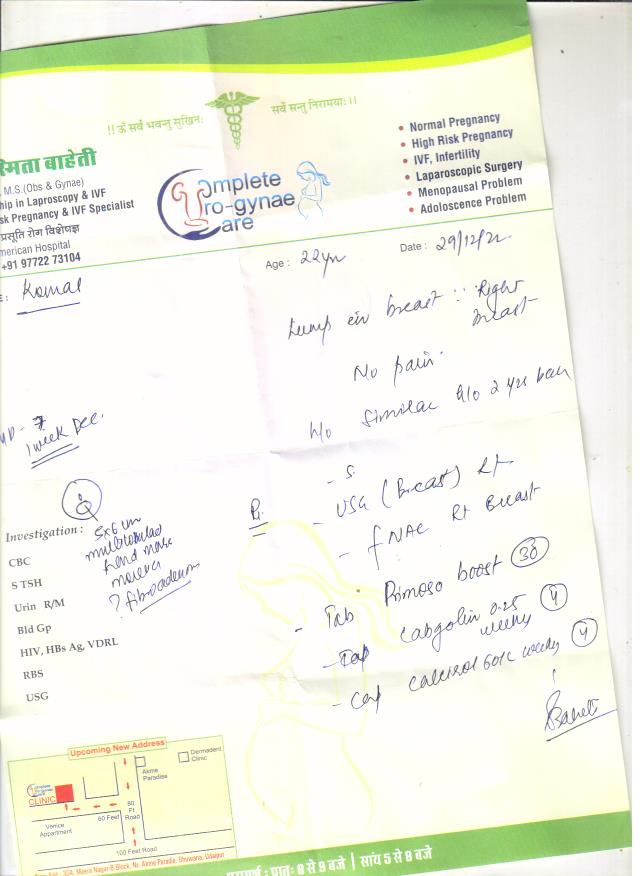 !! ॐ सर्वे भवन्तु सुखिनः सर्वे सन्तु निरामयाः !!
मिता बाहेती
M.S.(Obs & Gynae)
hip in Laproscopy & IVF
sk Pregnancy & IVF Specialist
प्रसूति रोग विशेषज्ञ
merican Hospital
+91 97722 73104
Complete
Uro-gynae
Care
• Normal Pregnancy
• High Risk Pregnancy
• IVF, Infertility
• Laparoscopic Surgery
• Menopausal Problem
• Adoloscence Problem
E: Komal
Age : 22yr
Date : 29/12/22
Lump in breast :: Right
breast
No pain.
h/o similar h/o 2 yrs back
1 week Dec.
Investigation :
CBC
S TSH
Urin R/M
Bld Gp
HIV, HBs Ag, VDRL
RBS
USG
5x6 cm
multilobulated
hard
? fibroadenoma
- S.
- USG (Breast) Rt
- FNAC Rt Breast
- Tab Primoso boost 30
- Tab Cabgolin 0.25 4
weekly
- Cap Calcirol 60k weekly 4
Baheti
Upcoming New Address
Complete
Uro-gynae
Care
CLINIC
Akme
Paradise
Dermadent
Clinic
Venice
Appartment
60 Feet
80
Ft
Road
100 Feet Road
304, Meera Nagar-B Block, Nr. Akme Paradie, Bhuwana, Udaipur
प्रातः 8 से 9 बजे | सांय 5 से 8 बजे